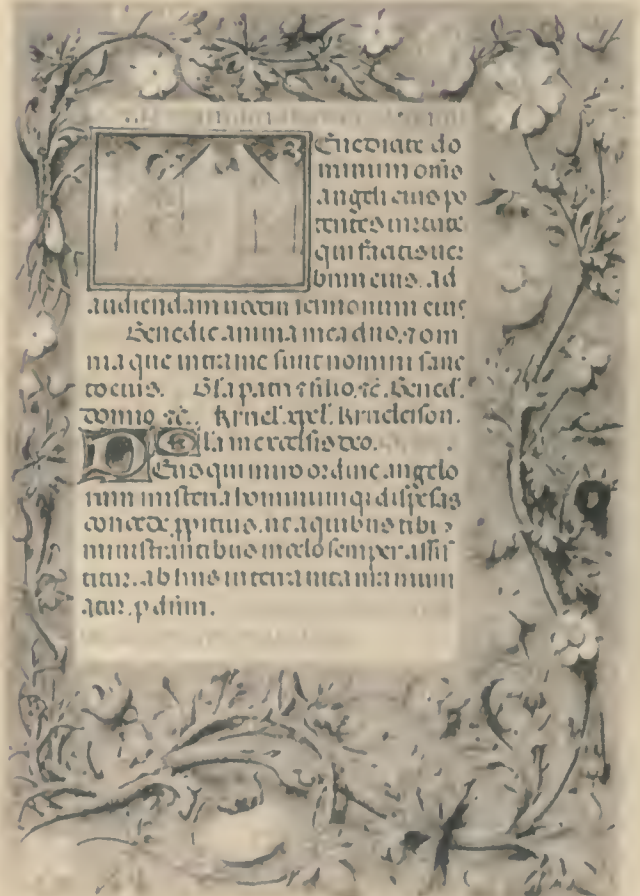 Enediate do
minum om̄s
angeli eius po
tentes uirtute
qui facitis uer
bum eius . ad
audiendam uocem sermonum eius
Benedic anima mea dño . ⁊ om
nia que intra me sunt nomini sanc
to eius . Gl̄a patri ⁊ filio . ⁊c̄ . Bened̄ .
domino ⁊c̄ . kyriel . xp̄el . kyrieleison .
Gl̄a in excelsis deo .
Deus qui miro ordine angelo
rum misteria hominum q̄ dispēsas
concede p̱pitius . ut a quibus tibi
ministrantibus in celo semper assis
titur . ab hiis in terra uita nr̄a muni
atur . p̱ dñm .